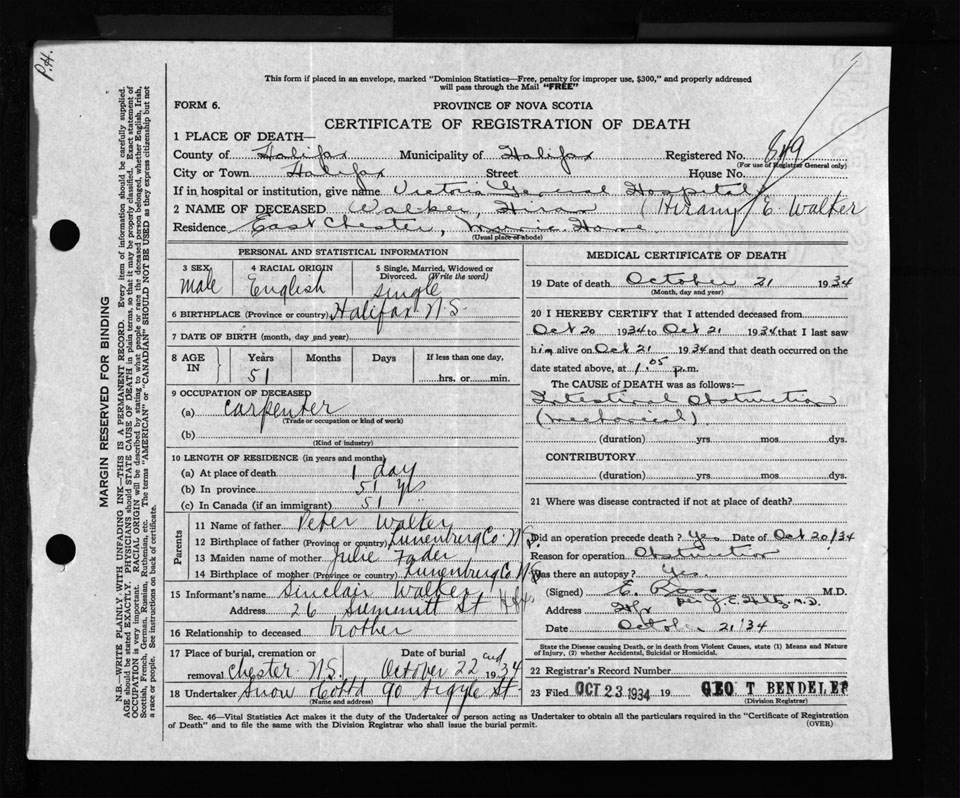 P.H.
This form if placed in an envelope, marked "Dominion Statistics—Free, penalty for improper use, $300," and properly addressed
will pass through the Mail "FREE"
FORM 6.
PROVINCE OF NOVA SCOTIA
CERTIFICATE OF REGISTRATION OF DEATH
1 PLACE OF DEATH—
County of Halifax Municipality of Halifax Registered No.
(For use of Registrar General only)
City or Town Halifax Street House No.
If in hospital or institution, give name Victoria General Hospital
2 NAME OF DECEASED Walker, Hiram (Hiram) E. Walker
Residence East Chester, Home
(Usual place of abode)
PERSONAL AND STATISTICAL INFORMATION
3 SEX 4 RACIAL ORIGIN 5 Single, Married, Widowed or
Divorced. (Write the word)
Male English single
6 BIRTHPLACE (Province or country) Halifax N.S.
7 DATE OF BIRTH (month, day and year)
8 AGE IN Years Months Days If less than one day,
51 hrs. or min.
9 OCCUPATION OF DECEASED
(a) Carpenter
(Trade or occupation or kind of work)
(b)
(Kind of industry)
10 LENGTH OF RESIDENCE (in years and months)
(a) At place of death 1 day
(b) In province 51 yrs
(c) In Canada (if an immigrant) 51 "
Parents
11 Name of father Peter Walker
12 Birthplace of father (Province or country) Lunenberg Co. N.S.
13 Maiden name of mother Julie Fader
14 Birthplace of mother (Province or country) Lunenberg Co N.S.
15 Informant's name Sinclair Walker
Address 26 Summitt St Hfx
16 Relationship to deceased brother
17 Place of burial, cremation or Date of burial
removal Chester N.S. October 22nd 1934
18 Undertaker Snow & Co Ltd 90 Argyle St
(Name and address)
MEDICAL CERTIFICATE OF DEATH
19 Date of death October 21 1934
(Month, day and year)
20 I HEREBY CERTIFY that I attended deceased from
Oct 20 1934 to Oct 21 1934 that I last saw
him alive on Oct 21 1934 and that death occurred on the
date stated above, at 1.05 p.m.
The CAUSE of DEATH was as follows:—
Intestinal Obstruction
(mechanical)
(duration) yrs. mos. dys.
CONTRIBUTORY
(duration) yrs. mos. dys.
21 Where was disease contracted if not at place of death?
Did an operation precede death? Yes Date of Oct 20/34
Reason for operation Obstruction
Was there an autopsy? Yes.
(Signed) E. Ross M.D.
Address Hfx Per J.C. M.D.
Date October 21 '34
State the Disease causing Death, or in death from Violent Causes, state (1) Means and Nature
of Injury, (2) whether Accidental, Suicidal or Homicidal.
22 Registrar's Record Number
23 Filed OCT 23 1934 19 GEO T BENDELEF
(Division Registrar)
Sec. 46—Vital Statistics Act makes it the duty of the Undertaker or person acting as Undertaker to obtain all the particulars required in the "Certificate of Registration
of Death" and to file the same with the Division Registrar who shall issue the burial permit. (OVER)
MARGIN RESERVED FOR BINDING
N.B.—WRITE PLAINLY, WITH UNFADING INK—THIS IS A PERMANENT RECORD. Every item of information should be carefully supplied.
AGE should be stated EXACTLY. PHYSICIANS should STATE CAUSE OF DEATH in plain terms, so that it may be properly classified. Exact statement of
OCCUPATION is very important. RACIAL ORIGIN will be described by stating to what people or race the deceased person belonged, whether English, Irish,
Scottish, French, German, Russian, Ruthenian, etc. The terms "AMERICAN" or "CANADIAN" SHOULD NOT BE USED as they express citizenship but not
a race or people. See instructions on back of certificate.